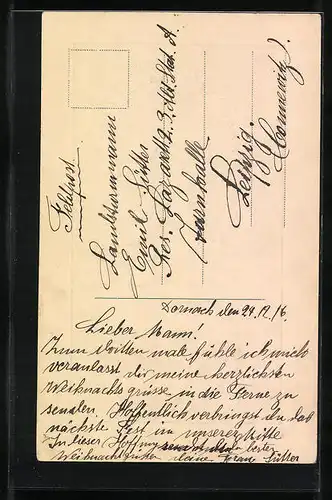 Feldpost
Landsturmmann
Emil Sütter
Res. Lazarett 2. 3. Abt. Stat. A
Turnhalle
Leipzig.
Connewitz.
Dornach den 24.12.16.
Lieber Mann!
Zum dritten male fühle ich mich
veranlasst dir meine herzlichsten
Weihnachts grüsse in die Ferne zu
senden. Hoffentlich verbringst du das
nächste Fest in unserer Mitte
In dieser Hoffnung beste
Weihnachtsgrüsse deine Frau Sütter